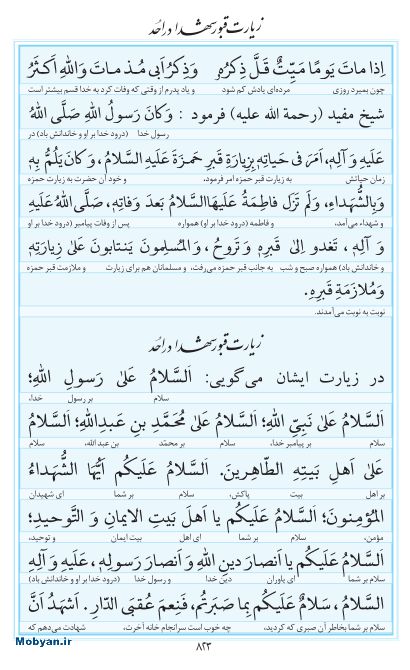 زیارت قبور شهدا در اُحُد
اِذا ماتَ یَومًا مَیِّتٌ قَلَّ ذِکرُهُ وَذِکرُ اَبی مُذ ماتَ وَاللهِ اَکثَرُ
چون بمیرد روزی مرده‌ای یادش کم شود و یاد پدرم از وقتی که وفات کرد به خدا قسم بیشتر است
شیخ مفید (رحمة الله علیه) فرمود : وَکانَ رَسولُ اللهِ صَلَّی اللهُ
رسول خدا (درود خدا بر او و خاندانش باد) در
عَلَیهِ وَآلِهِ، اَمَرَ فی حَیاتِهِ بِزِیارَةِ قَبرِ حَمزَةَ عَلَیهِ السَّلامُ، وَکانَ یَلُمُّ بِهِ
زمان حیاتش به زیارت قبر حمزه امر فرمود، و خود آن حضرت به زیارت حمزه
وَبِالشُّهَداءِ، وَلَم تَزَل فاطِمَةُ عَلَیهَا السَّلامُ بَعدَ وَفاتِهِ، صَلَّی اللهُ عَلَیهِ
و شهداء می‌آمد، و فاطمه (درود خدا بر او) همواره پس از وفات پیامبر (درود خدا بر او
وَ آلِهِ، تَغدو اِلیٰ قَبرِهِ وَ تَروحُ، وَالمُسلِمونَ یَنتابونَ عَلیٰ زِیارَتِهِ
و خاندانش باد) همواره صبح و شب به جانب قبر حمزه می‌رفت، و مسلمانان هم برای زیارت و ملازمت قبر حمزه
وَمُلازَمَةِ قَبرِهِ.
نوبت به نوبت می‌آمدند.
زیارت قبور شهدا در اُحُد
در زیارت ایشان می‌گویی: اَلسَّلامُ عَلیٰ رَسولِ اللهِ؛
سلام بر رسول خدا،
اَلسَّلامُ عَلیٰ نَبِیِّ اللهِ؛ اَلسَّلامُ عَلیٰ مُحَمَّدِ بنِ عَبدِاللهِ؛ اَلسَّلامُ
سلام بر پیامبر خدا، سلام بر محمّد بن عبدالله، سلام
عَلیٰ اَهلِ بَیتِهِ الطّاهِرینَ. اَلسَّلامُ عَلَیکُم اَیُّهَا الشُّهَداءُ
بر اهل بیت پاکش، سلام بر شما ای شهیدان
المُؤمِنونَ؛ اَلسَّلامُ عَلَیکُم یا اَهلَ بَیتِ الایمانِ وَ التَّوحیدِ؛
مؤمن، سلام بر شما ای اهل بیت ایمان و توحید،
اَلسَّلامُ عَلَیکُم یا اَنصارَ دینِ اللهِ وَ اَنصارَ رَسولِهِ، عَلَیهِ وَ آلِهِ
سلام بر شما ای یاوران دین خدا و رسول خدا (درود خدا بر او و خاندانش باد)
السَّلامُ، سَلامٌ عَلَیکُم بِما صَبَرتُم، فَنِعمَ عُقبَی الدّارِ. اَشهَدُ اَنَّ
سلام بر شما بخاطر آن صبری که کردید، چه خوب است سرانجام خانه آخرت، شهادت می‌دهم که
Mobyan.ir
۸۲۳